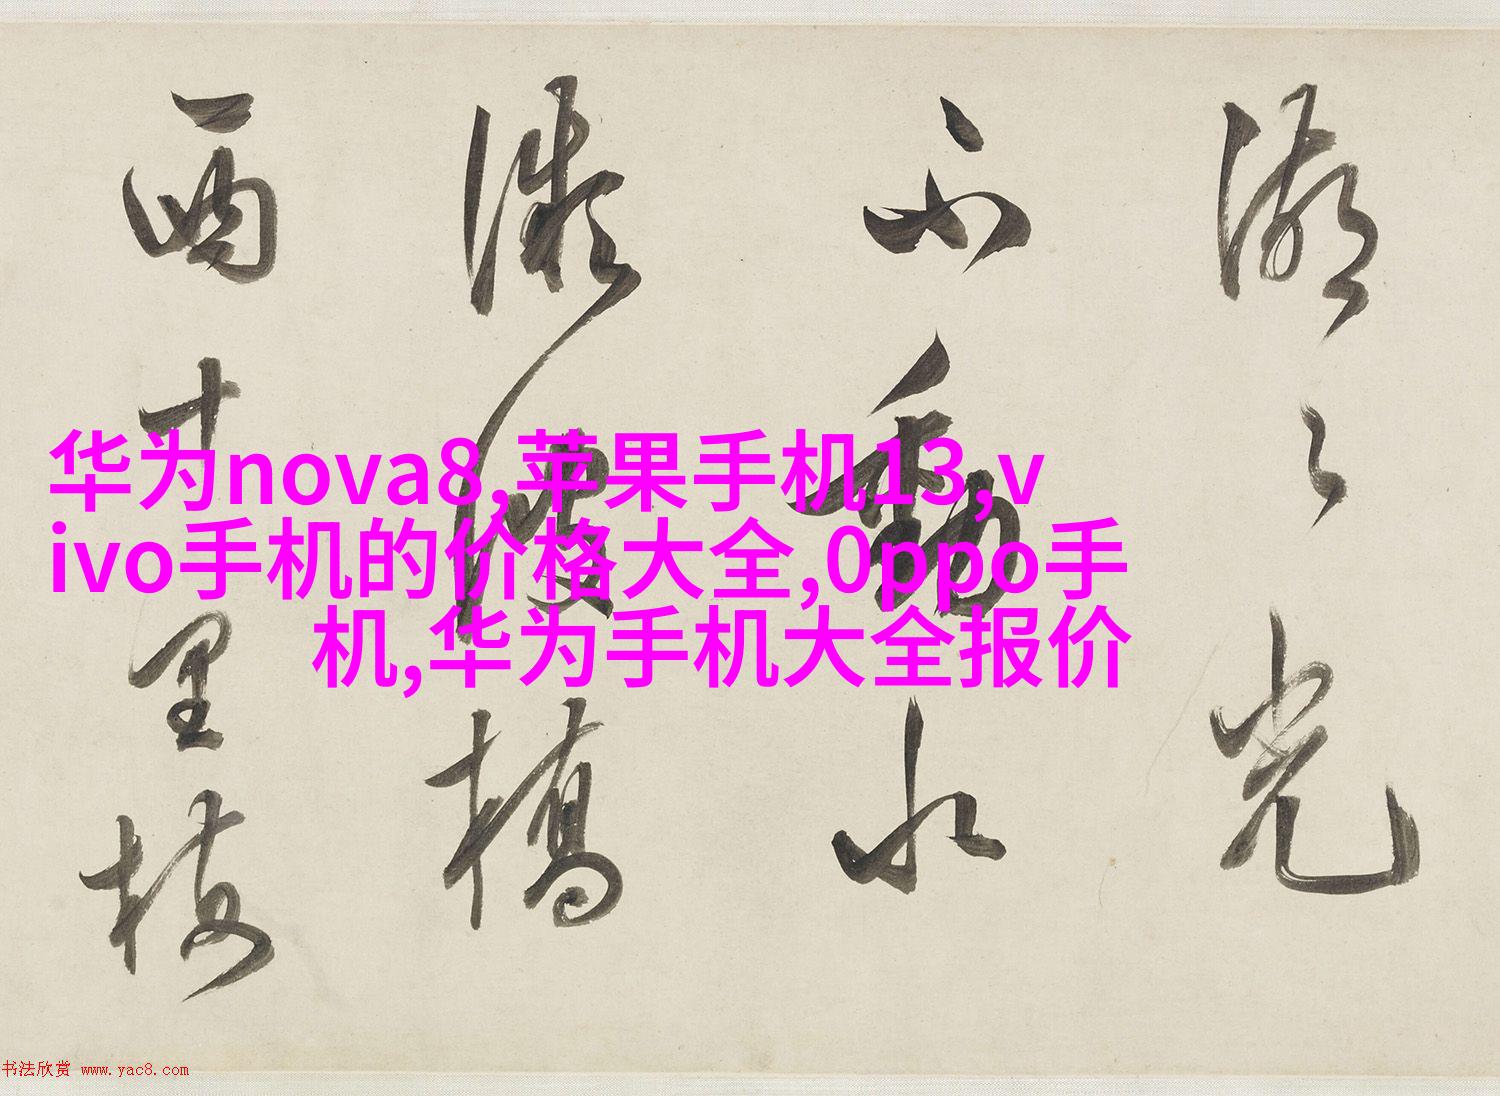 光
不動水
橋
十里
华为nova8,苹果手机13,v
ivo手机的价格大全,0ppo手
机,华为手机大全报价
书法欣赏 www.yac8.com